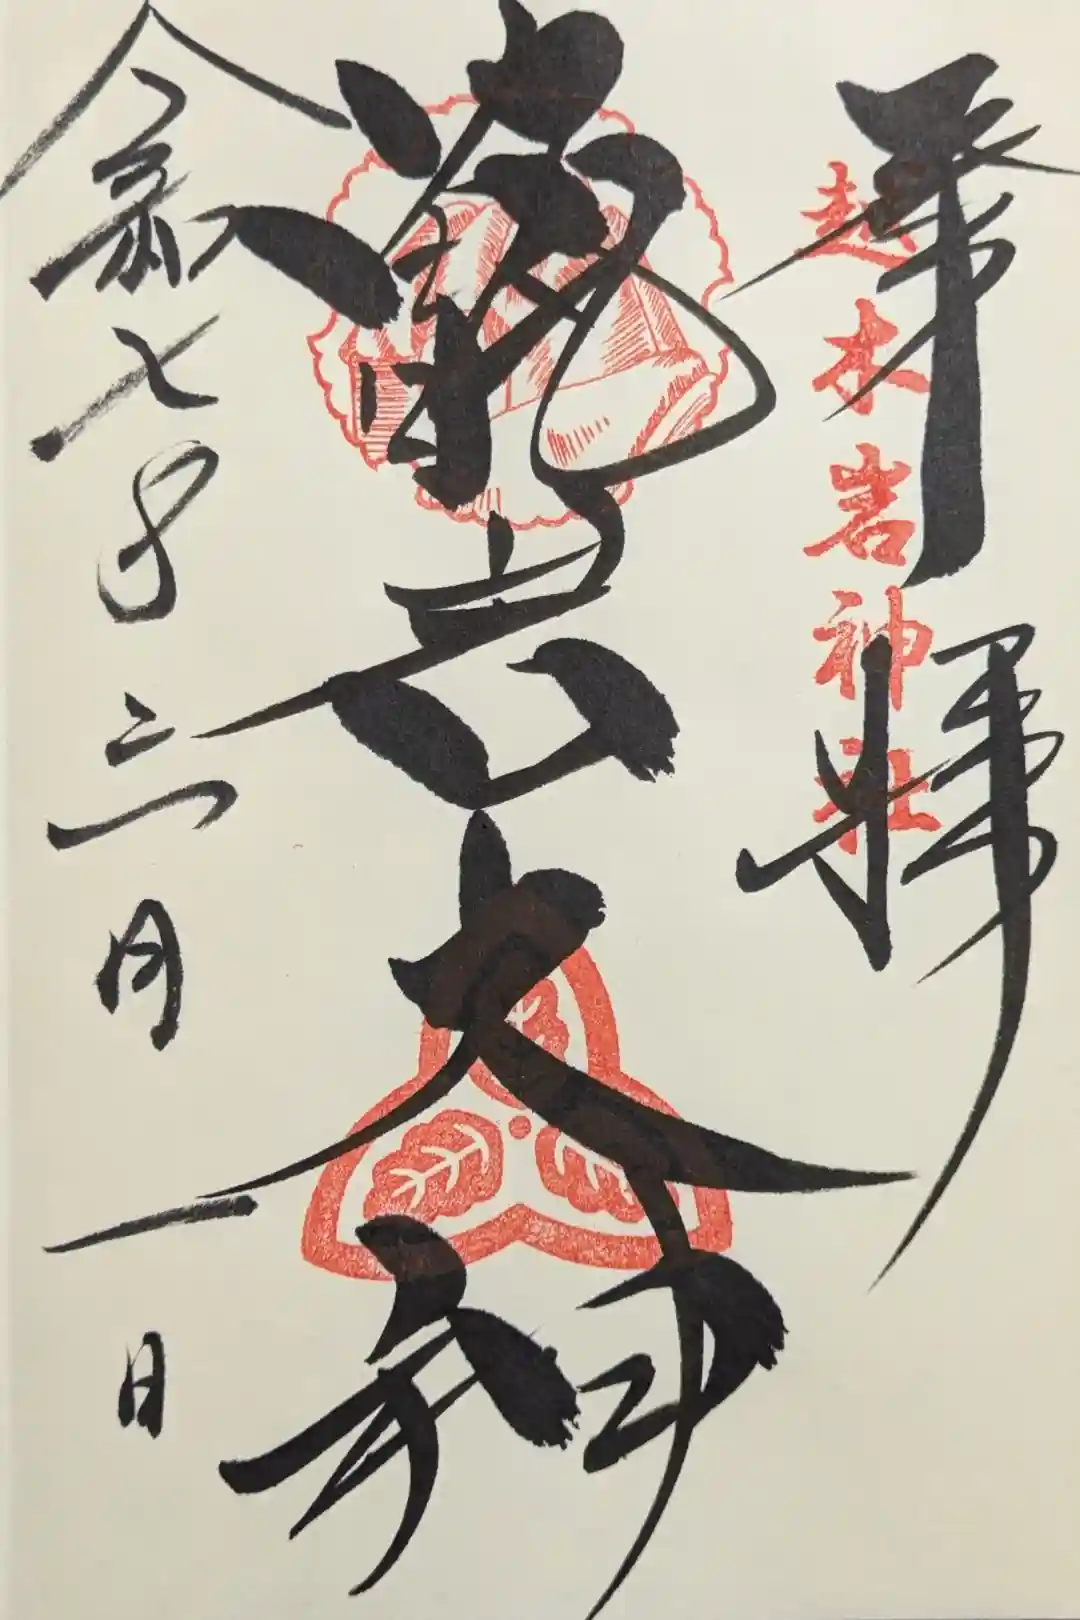 奉拝
越木岩神社
甑岩大神
令和七年三月一日